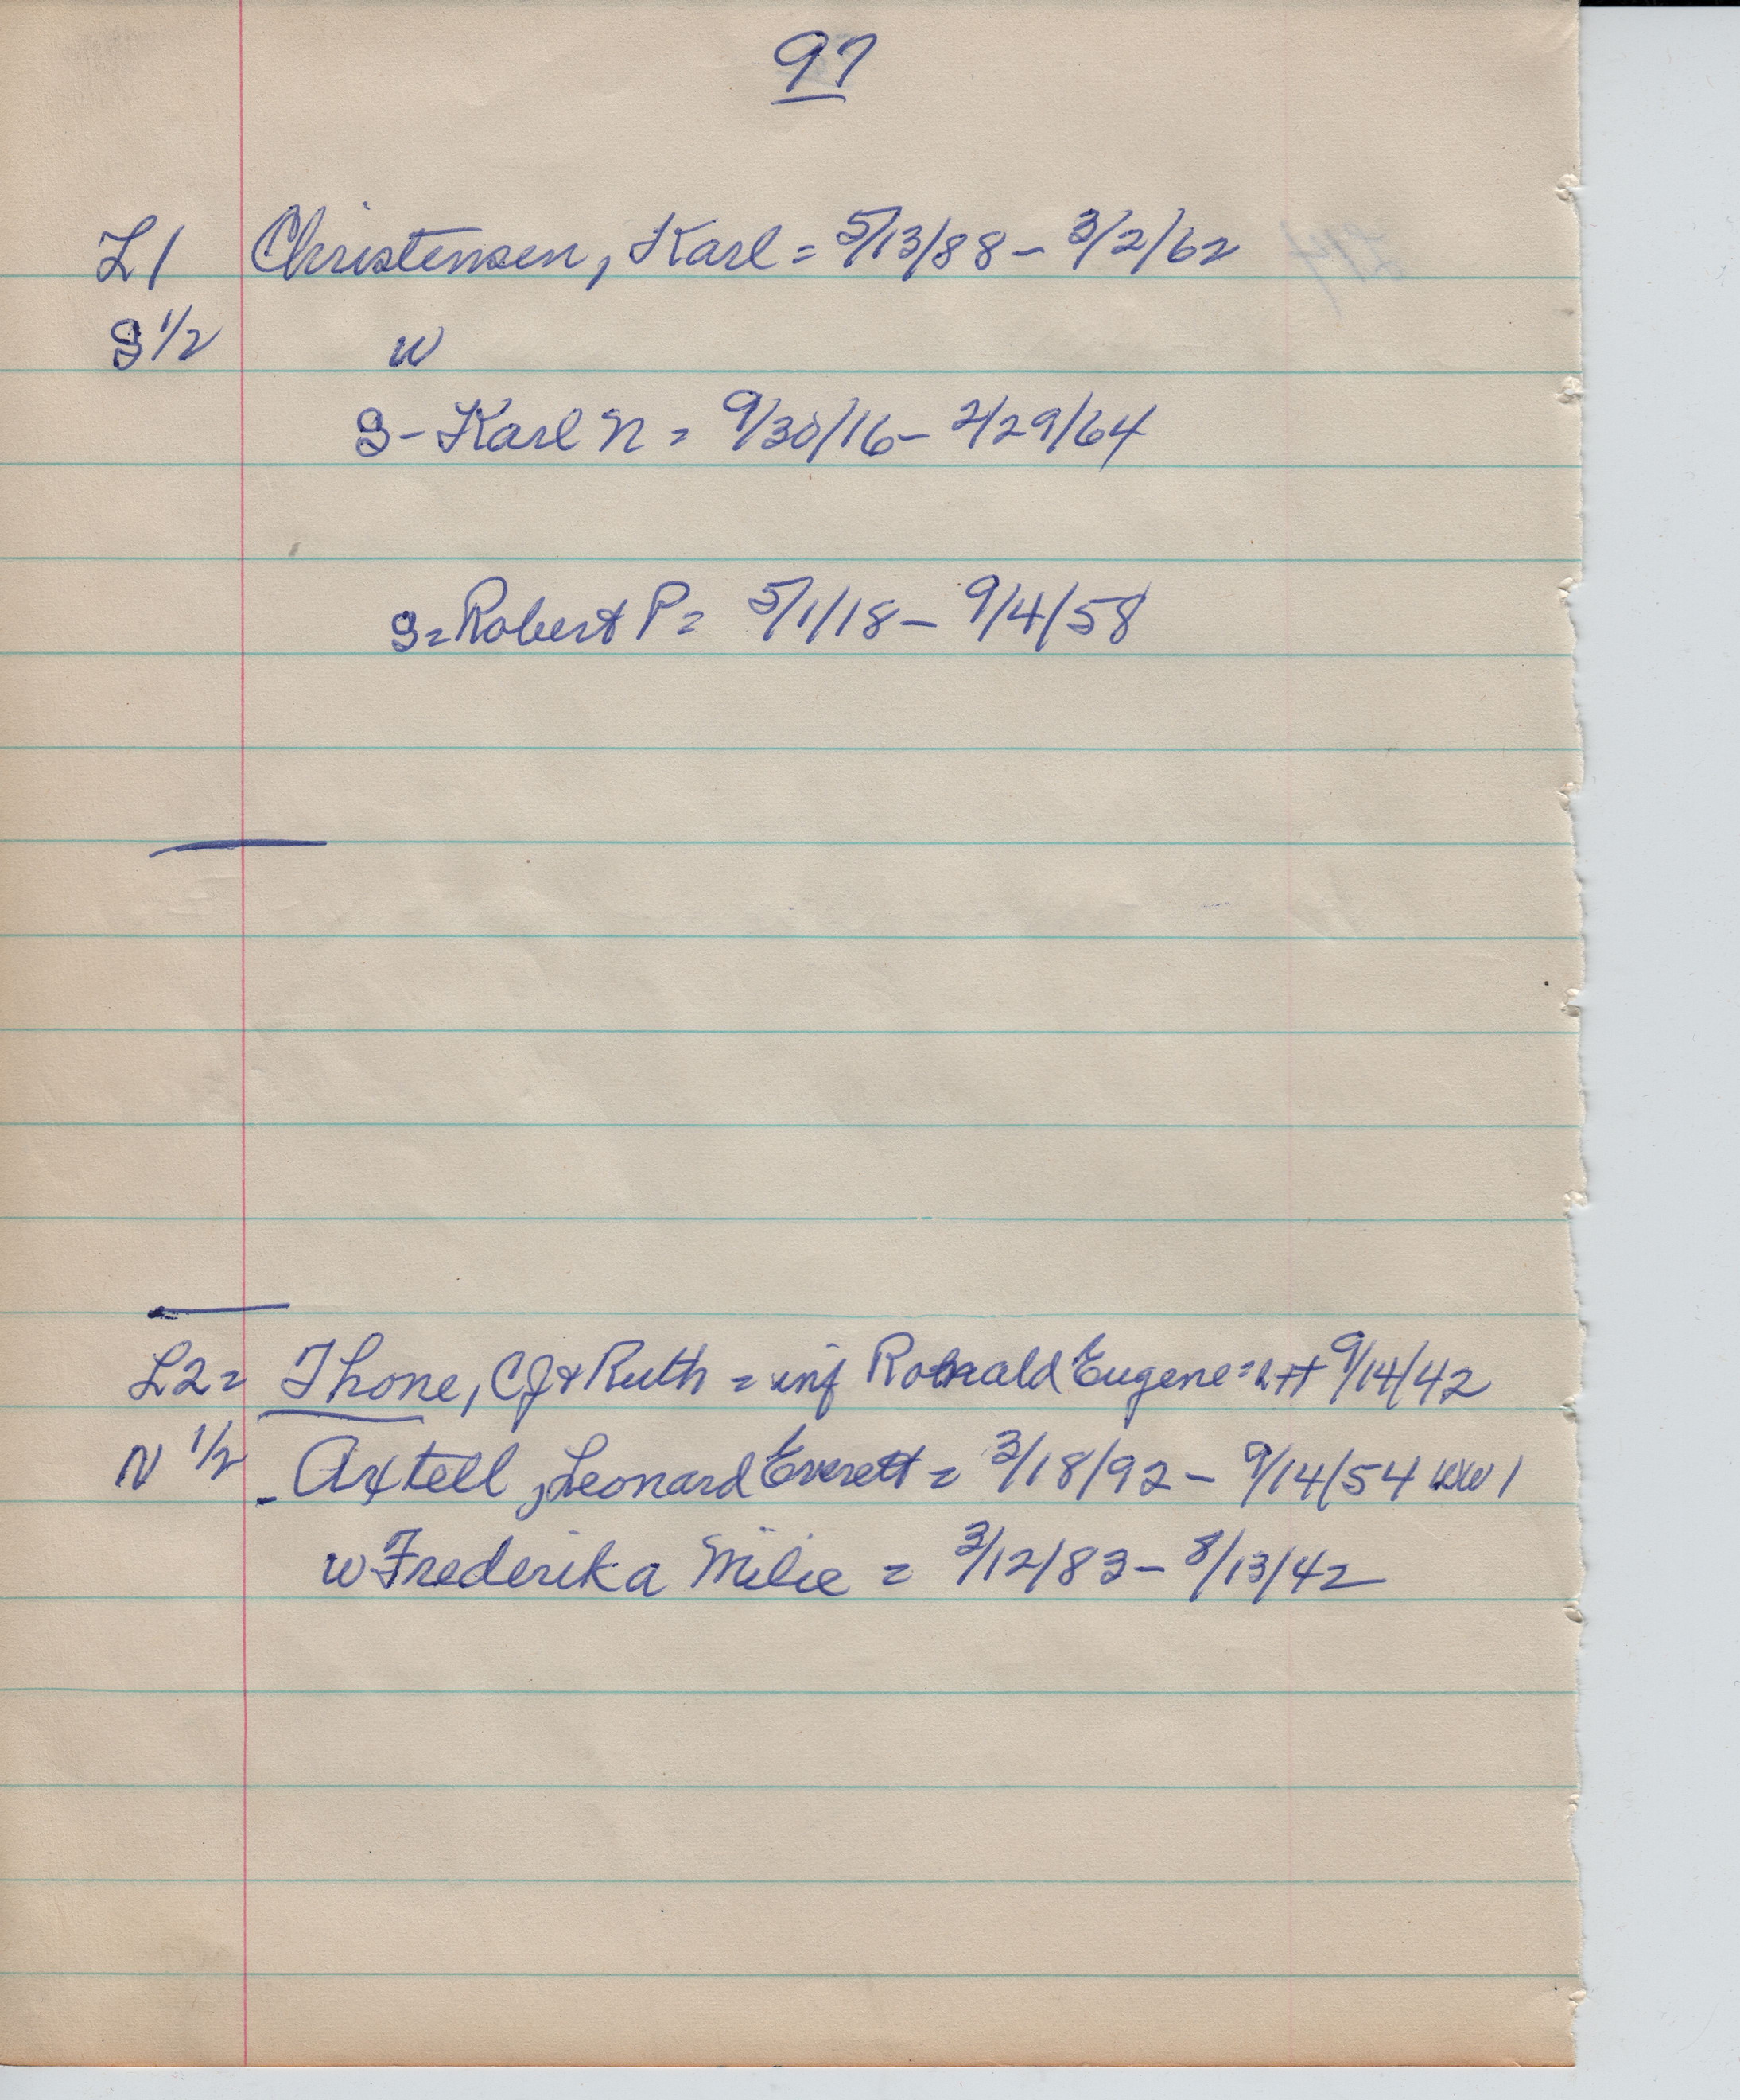 97
L1 Christensen, Karl = 5/13/88 - 3/2/62
S 1/2 w
S - Karl N = 9/30/16 - 2/29/64
S = Robert P = 5/1/18 - 9/4/58
L2 = Thone, CJ & Ruth = inf Ronald Eugene = 9/14/42
N 1/2 - Axtell, Leonard Everett = 3/18/92 - 9/14/54 WW 1
w Frederika Milie = 3/12/83 - 8/13/42